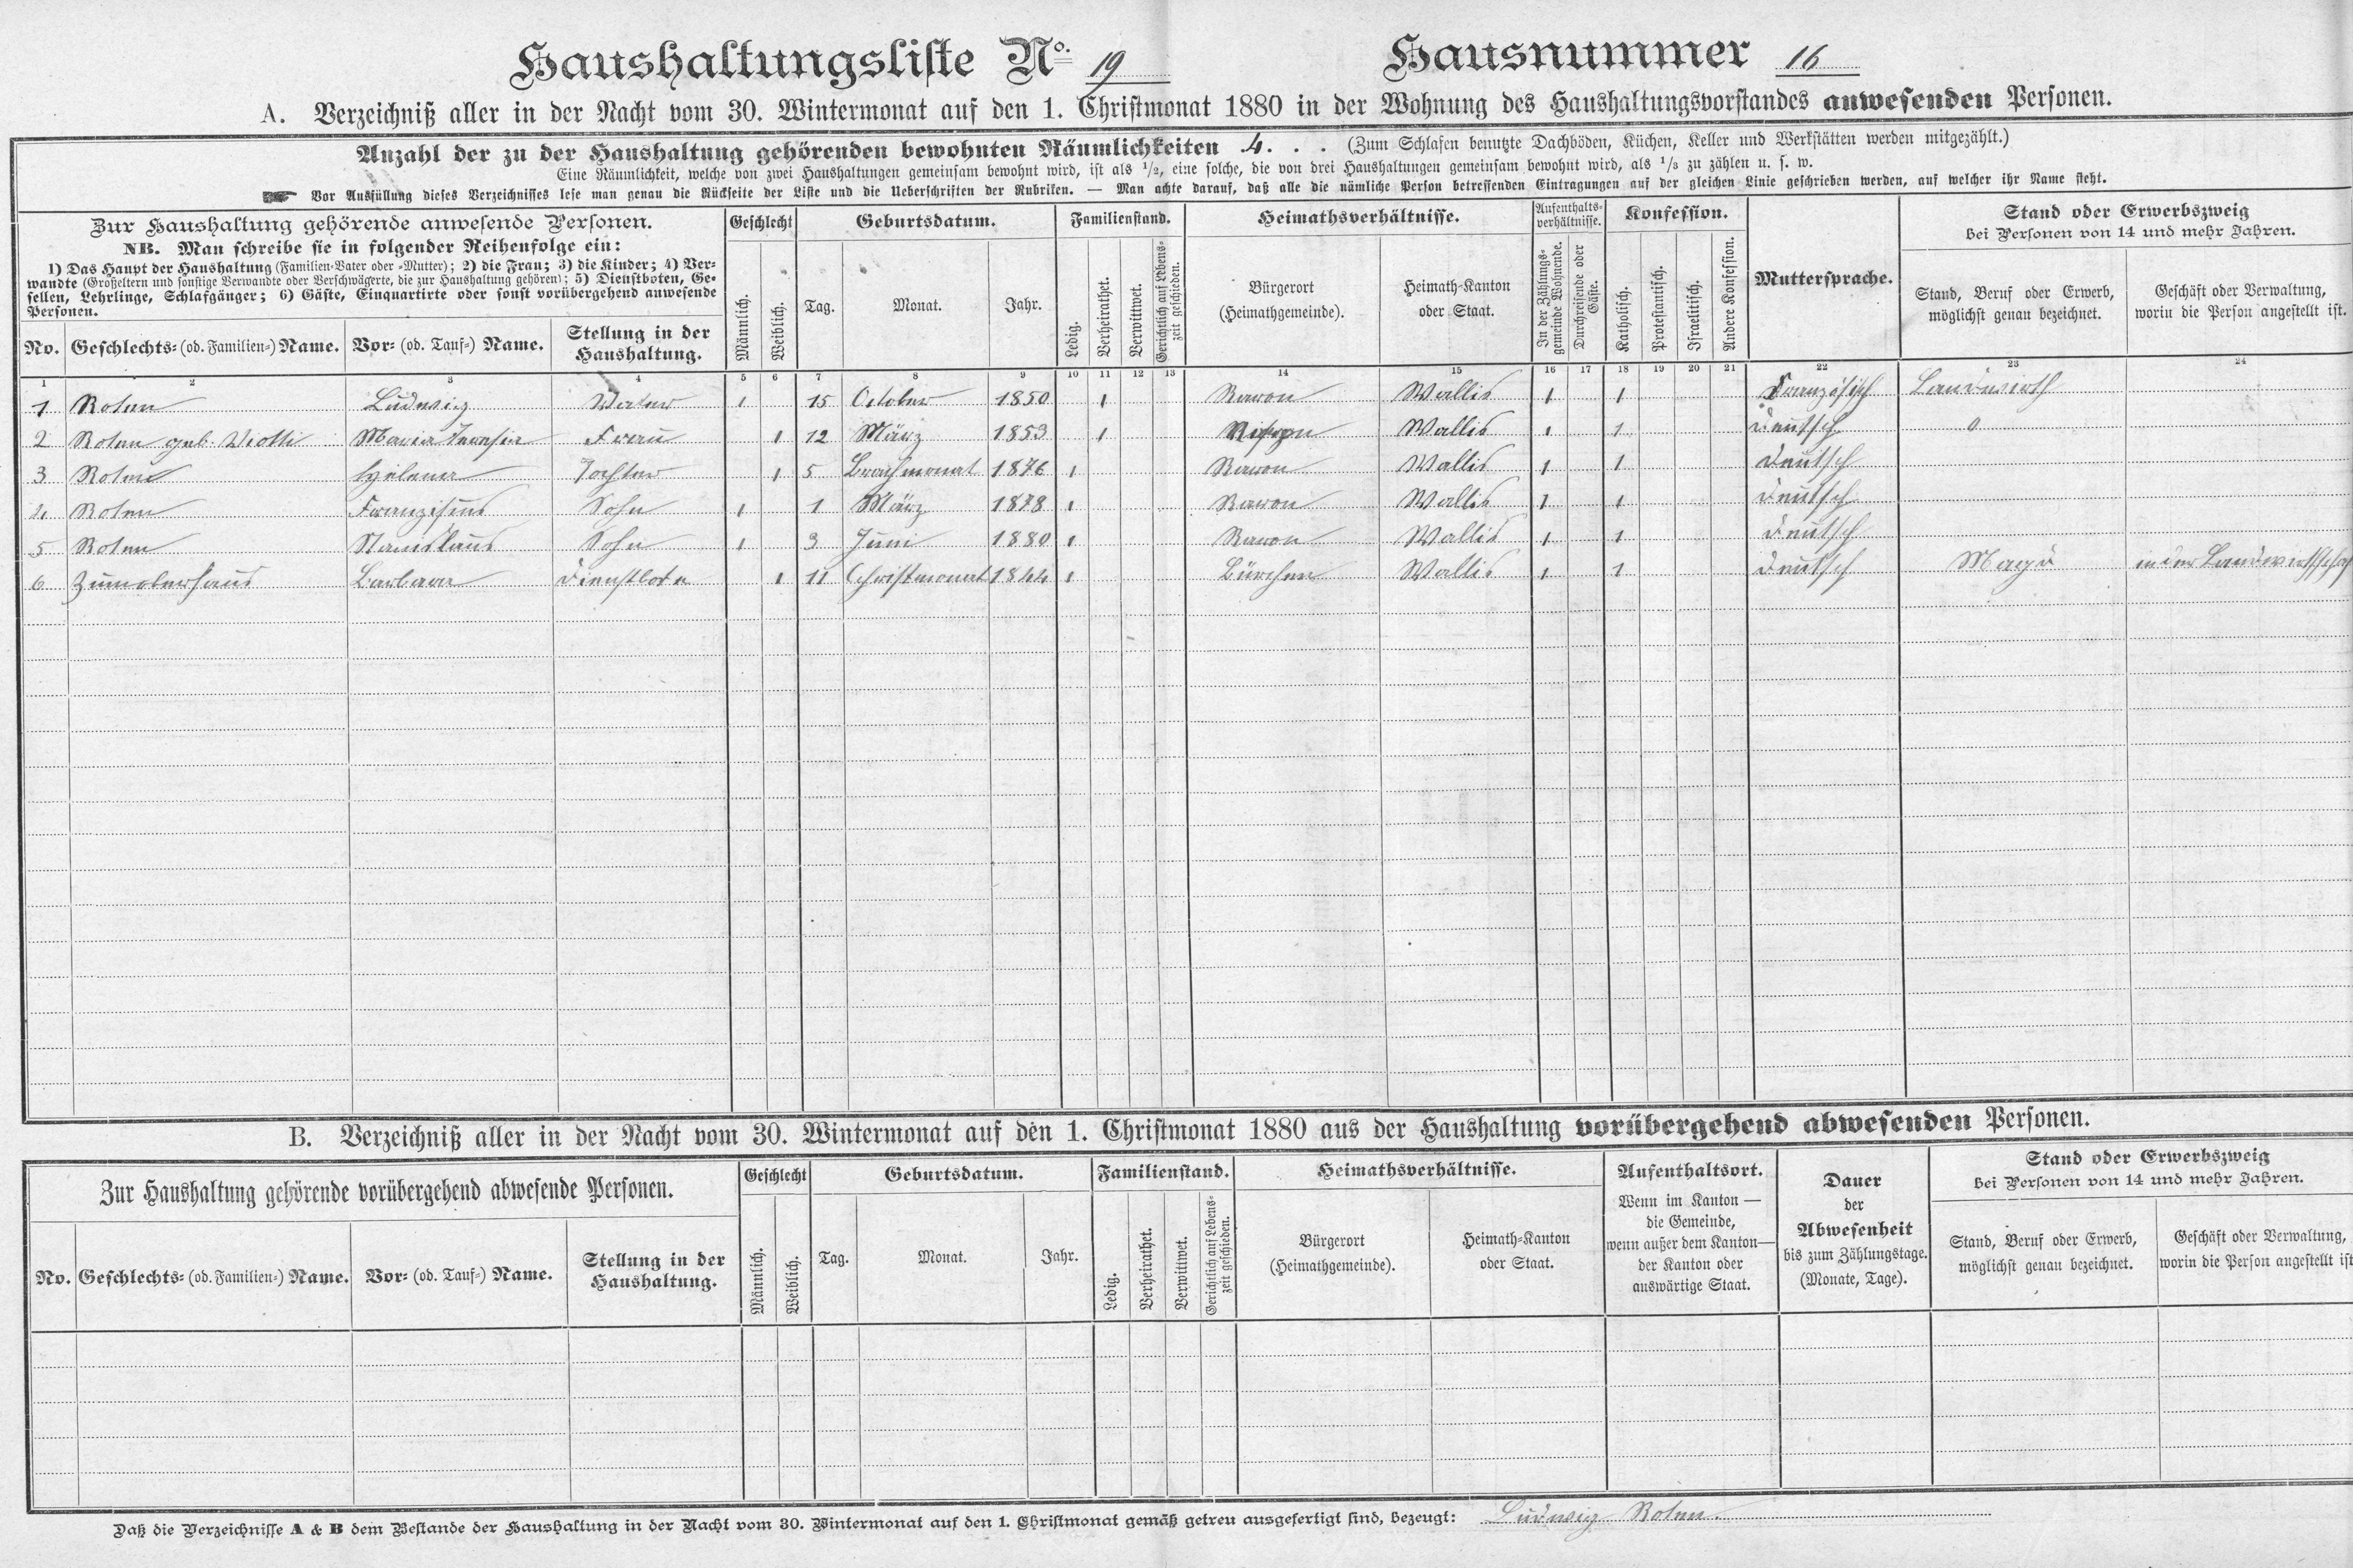 Haushaltungsliste No. 19 Hausnummer 16
A. Verzeichniß aller in der Nacht vom 30. Wintermonat auf den 1. Christmonat 1880 in der Wohnung des Haushaltungsvorstandes anwesenden Personen.
Anzahl der zu der Haushaltung gehörenden bewohnten Räumlichkeiten 4. . . (Zum Schlafen benutzte Dachböden, Küchen, Keller und Werkstätten werden mitgezählt.)
Eine Räumlichkeit, welche von zwei Haushaltungen gemeinsam bewohnt wird, ist als 1/2, eine solche, die von drei Haushaltungen gemeinsam bewohnt wird, als 1/3 zu zählen u. s. w.
☛ Vor Ausfüllung dieses Verzeichnisses lese man genau die Rückseite der Liste und die Ueberschriften der Rubriken. — Man achte darauf, daß alle die nämliche Person betreffenden Eintragungen auf der gleichen Linie geschrieben werden, auf welcher ihr Name steht.
Zur Haushaltung gehörende anwesende Personen.
NB. Man schreibe sie in folgender Reihenfolge ein:
1) Das Haupt der Haushaltung (Familien-Vater oder -Mutter); 2) die Frau; 3) die Kinder; 4) Ver-
wandte (Großeltern und sonstige Verwandte oder Verschwägerte, die zur Haushaltung gehören); 5) Dienstboten, Ge-
sellen, Lehrlinge, Schlafgänger; 6) Gäste, Einquartirte oder sonst vorübergehend anwesende
Personen.
No. Geschlechts- (od. Familien-) Name. Vor- (od. Tauf-) Name. Stellung in der
Haushaltung.
Geschlecht
Männlich. Weiblich.
Geburtsdatum.
Tag. Monat. Jahr.
Familienstand.
Ledig. Verheirathet. Verwittwet. Gerichtlich auf Lebens-
zeit geschieden.
Heimathsverhältnisse.
Bürgerort
(Heimathgemeinde).
Heimath-Kanton
oder Staat.
Aufenthalts-
verhältnisse.
In der Zählungs-
gemeinde Wohnende.
Durchreisende oder
Gäste.
Konfession.
Katholisch. Protestantisch. Israelitisch. Andere Konfession.
Muttersprache.
Stand oder Erwerbszweig
bei Personen von 14 und mehr Jahren.
Stand, Beruf oder Erwerb,
möglichst genau bezeichnet.
Geschäft oder Verwaltung,
worin die Person angestellt ist.
1 2 3 4 5 6 7 8 9 10 11 12 13 14 15 16 17 18 19 20 21 22 23 24
1 Roten Ludwig Vater 1 15 October 1850 1 Raron Wallis 1 1 Französisch Landwirth
2 Roten geb. Viotti Maria Teresia Frau 1 12 März 1853 1 Wallis 1 1 Deutsch 0
3 Roten Helena Tochter 1 5 Brachmonat 1876 1 Raron Wallis 1 1 Deutsch
4 Roten Franziskus Sohn 1 1 März 1878 1 Raron Wallis 1 1 Deutsch
5 Roten Stanislaus Sohn 1 3 Juni 1880 1 Raron Wallis 1 1 Deutsch
6 Zumoberhaus Barbara Dienstbote 1 11 Christmonat 1844 1 Bürchen Wallis 1 1 Deutsch Magd in der Landwirthschaft
B. Verzeichniß aller in der Nacht vom 30. Wintermonat auf den 1. Christmonat 1880 aus der Haushaltung vorübergehend abwesenden Personen.
Zur Haushaltung gehörende vorübergehend abwesende Personen.
No. Geschlechts- (od. Familien-) Name. Vor- (od. Tauf-) Name. Stellung in der
Haushaltung.
Geschlecht
Männlich. Weiblich.
Geburtsdatum.
Tag. Monat. Jahr.
Familienstand.
Ledig. Verheirathet. Verwittwet. Gerichtlich auf Lebens-
zeit geschieden.
Heimathsverhältnisse.
Bürgerort
(Heimathgemeinde).
Heimath-Kanton
oder Staat.
Aufenthaltsort.
Wenn im Kanton —
die Gemeinde,
wenn außer dem Kanton—
der Kanton oder
auswärtige Staat.
Dauer
der
Abwesenheit
bis zum Zählungstage.
(Monate, Tage).
Stand oder Erwerbszweig
bei Personen von 14 und mehr Jahren.
Stand, Beruf oder Erwerb,
möglichst genau bezeichnet.
Geschäft oder Verwaltung,
worin die Person angestellt ist
Daß die Verzeichnisse A & B dem Bestande der Haushaltung in der Nacht vom 30. Wintermonat auf den 1. Christmonat gemäß getreu ausgefertigt sind, bezeugt: Ludwig Roten.